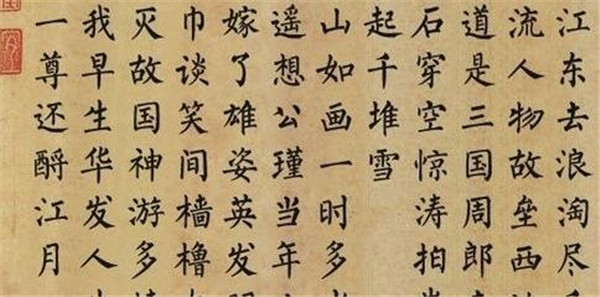 江东去浪淘尽
流人物故垒西
道是三国周郎
石穿空惊涛拍
起千堆雪
山如画一时多
遥想公瑾当年
嫁了雄姿英发
巾谈笑间樯橹
灭故国神游多
我早生华发人
一尊还酹江月